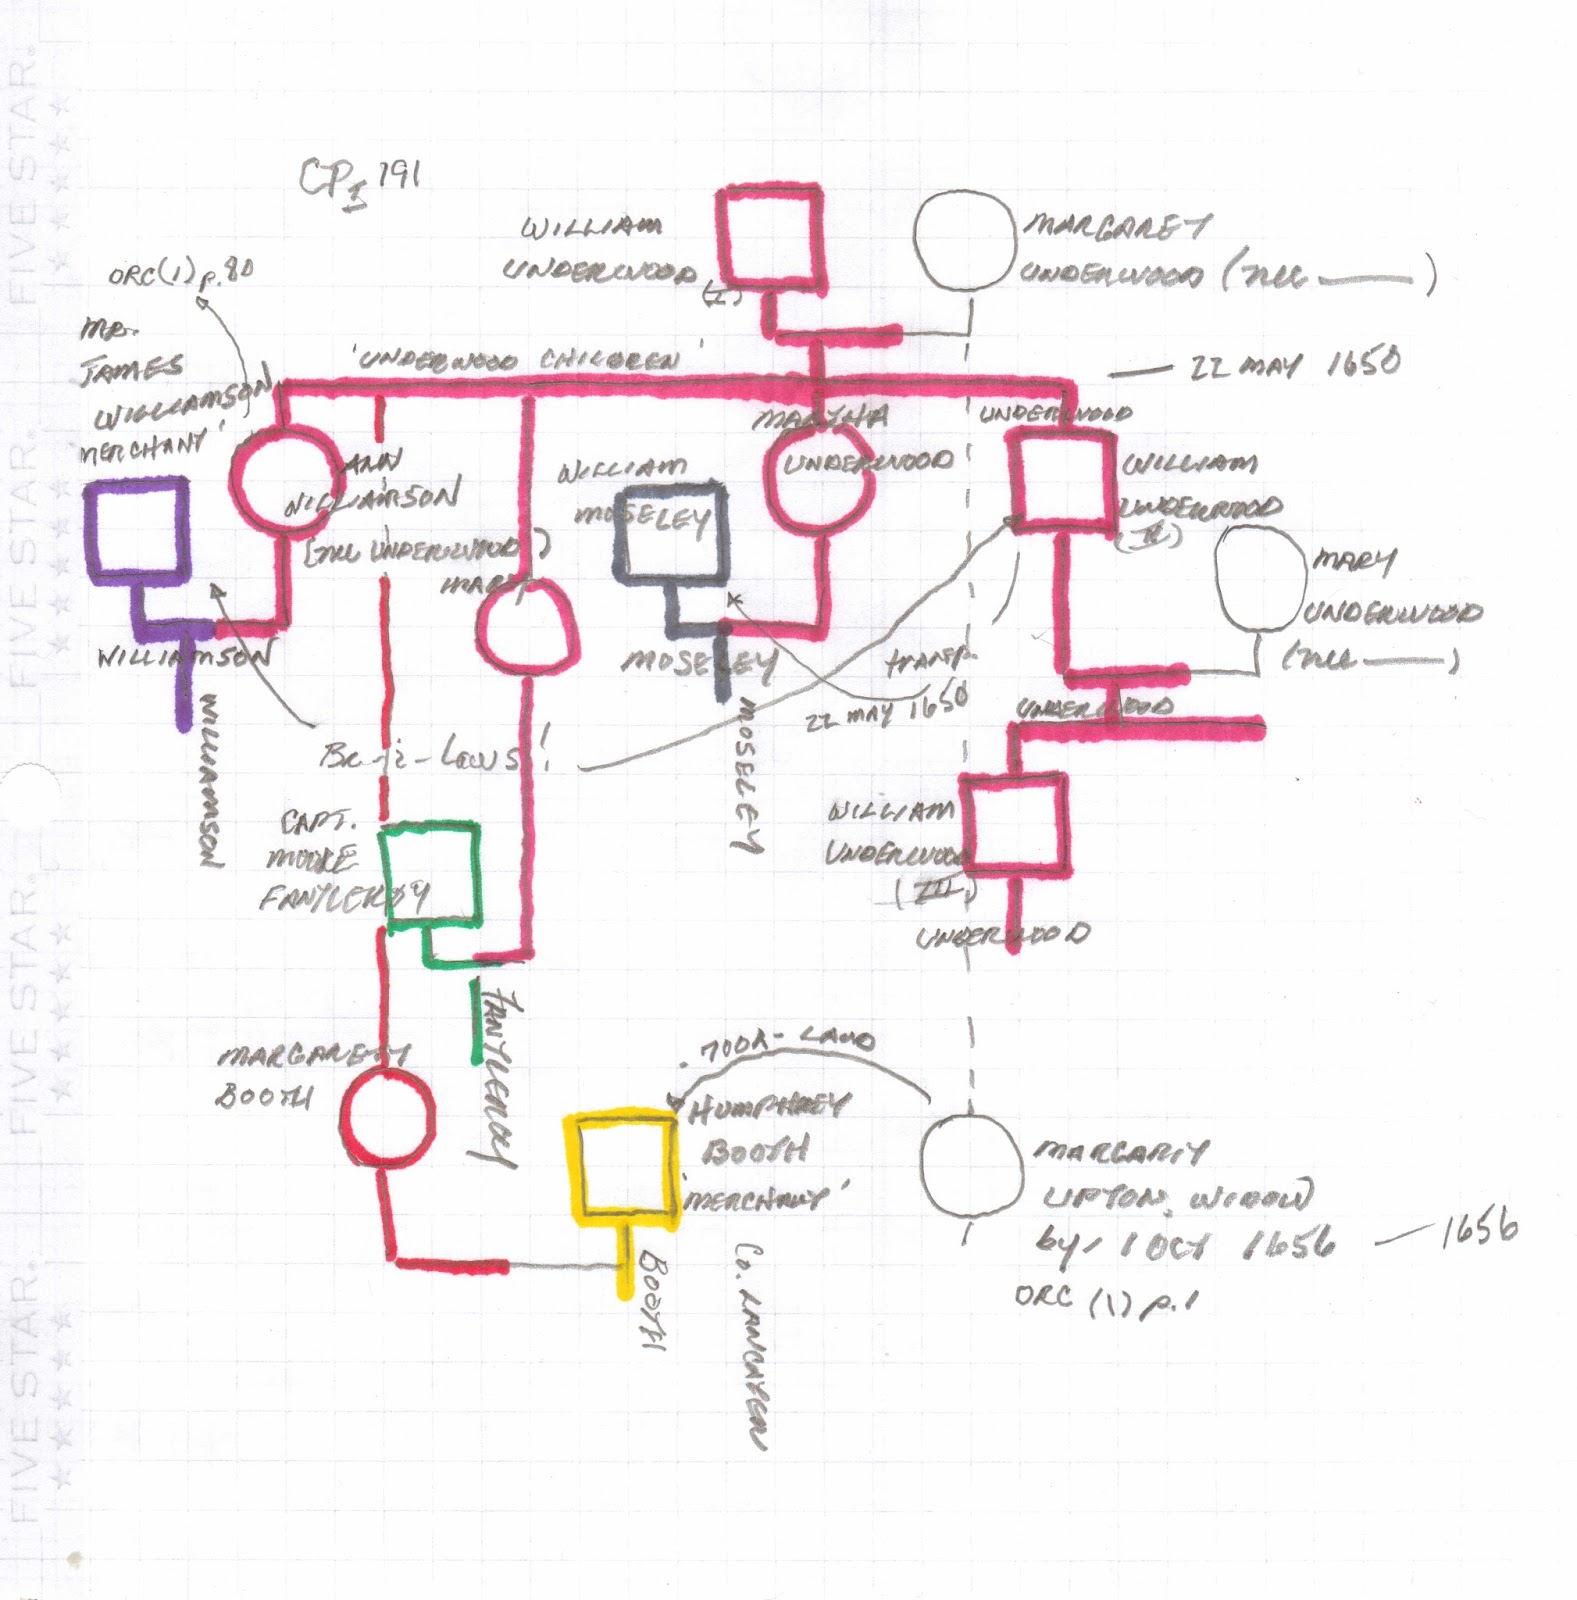 CPI 191
WILLIAM
UNDERWOOD
(I)
MARGARET
UNDERWOOD (nee ——— )
ORC(1) p.80
MR.
JAMES
WILLIAMSON
MERCHANT'
'UNDERWOOD CHILDREN'
— 22 MAY 1650
MARTHA
UNDERWOOD
UNDERWOOD
WILLIAM
UNDERWOOD
(II)
ANN
WILLIAMSON
(nee UNDERWOOD)
MARY
WILLIAM
MOSELEY
MARY
UNDERWOOD
(nee ——— )
WILLIAMSON
WILLIAMSON
MOSELEY
MOSELEY
TRANSP.
22 MAY 1650
UNDERWOOD
Br-i-Laws!
CAPT.
MOORE
FANTLEROY
WILLIAM
UNDERWOOD
(III)
UNDERWOOD
FANTLEROY
MARGARETT
BOOTH
700A-LAND
HUMPHREY
BOOTH
'MERCHANT'
BOOTH
Co. LANCASTER
MARGARIT
UPTON, WIDOW
by 1 OCT 1656 — 1656
ORC (1) p.1
FIVE STAR.
FIVE STAR.
FIVE STAR.
FIVE STAR.
FIVE STAR.